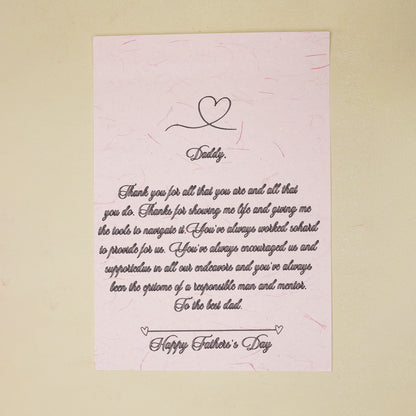 Daddy,
Thank you for all that you are and all that
you do. Thanks for showing me life and giving me
the tools to navigate it.You've always worked sohard
to provide for us. You've always encouraged us and
supportedus in all our endeavors and you've always
been the epitome of a responsible man and mentor.
To the best dad.
Happy Fathers's Day